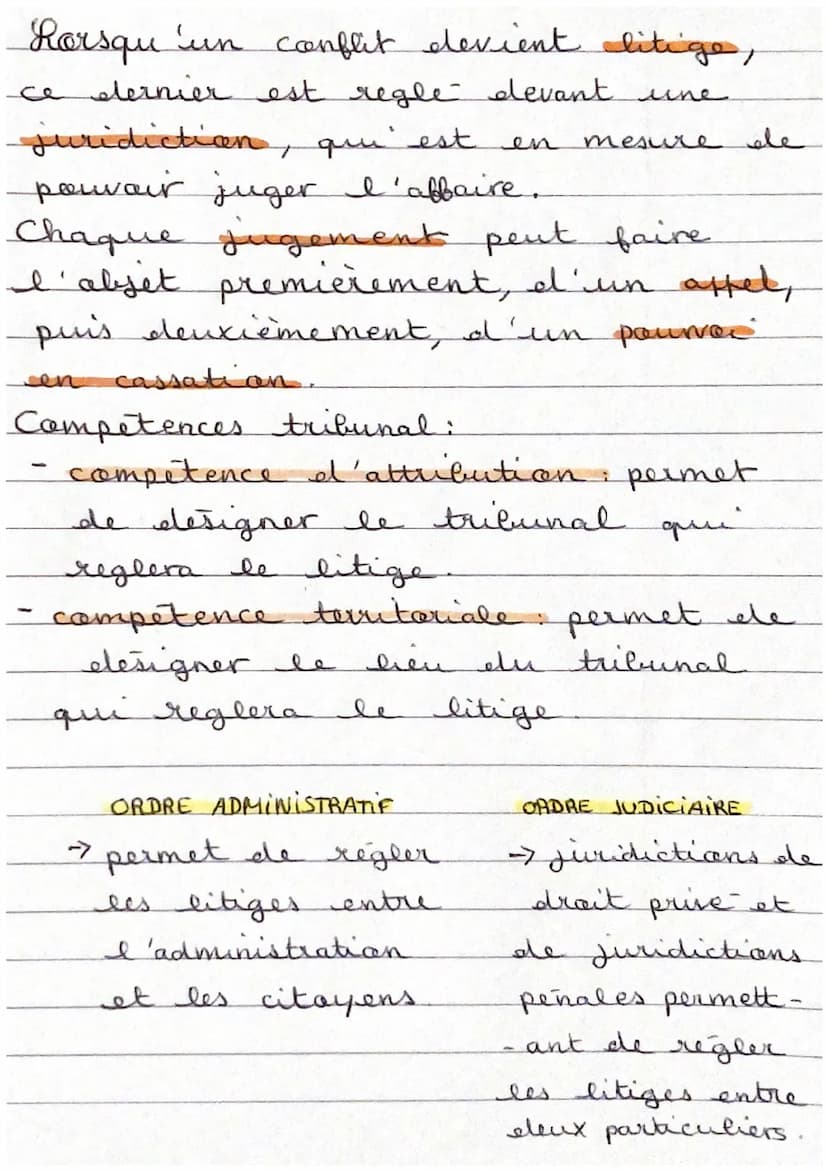 Lorsqu'un conflit devient litige,
ce dernier est réglé devant une
juridiction, qui est en mesure de
pouvoir juger l'affaire.
Chaque jugement peut faire
l'objet premièrement, d'un appel,
puis deuxièmement, d'un pourvoi
en cassation.
Compétences tribunal :
- compétence d'attribution : permet
de désigner le tribunal qui
réglera le litige.
- compétence territoriale : permet de
désigner le lieu du tribunal
qui réglera le litige.
ORDRE ADMINISTRATIF
→ permet de régler
les litiges entre
l'administration
et les citoyens.
ORDRE JUDICIAIRE
→ juridictions de
droit privé et
de juridictions
pénales permett-
-ant de régler
les litiges entre
deux particuliers.